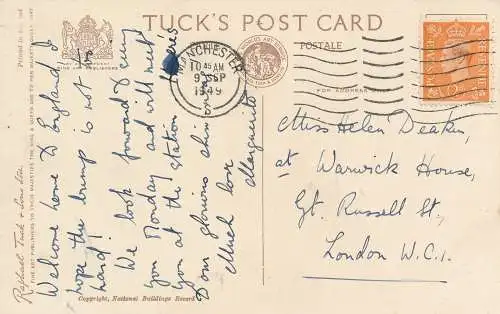 TUCK'S POST CARD
CARTE POSTALE
FOR ADDRESS ONLY
WINCHESTER
10 45 AM
9 SP
1949
POSTAGE
REVENUE
Miss Helen Deakin,
at Warwick House,
Gt. Russell St.
London W.C.1.
Welcome home to England I
hope the bump is not too
hard!
We look forward to seeing
you Monday and will meet
you at the station. Here's
Dom glorious chimneys
Much love
Marguerite
Raphael Tuck & Sons Ltd.
FINE ART PUBLISHERS TO THEIR MAJESTIES THE KING & QUEEN AND TO HER MAJESTY QUEEN MARY
Copyright, National Buildings Record